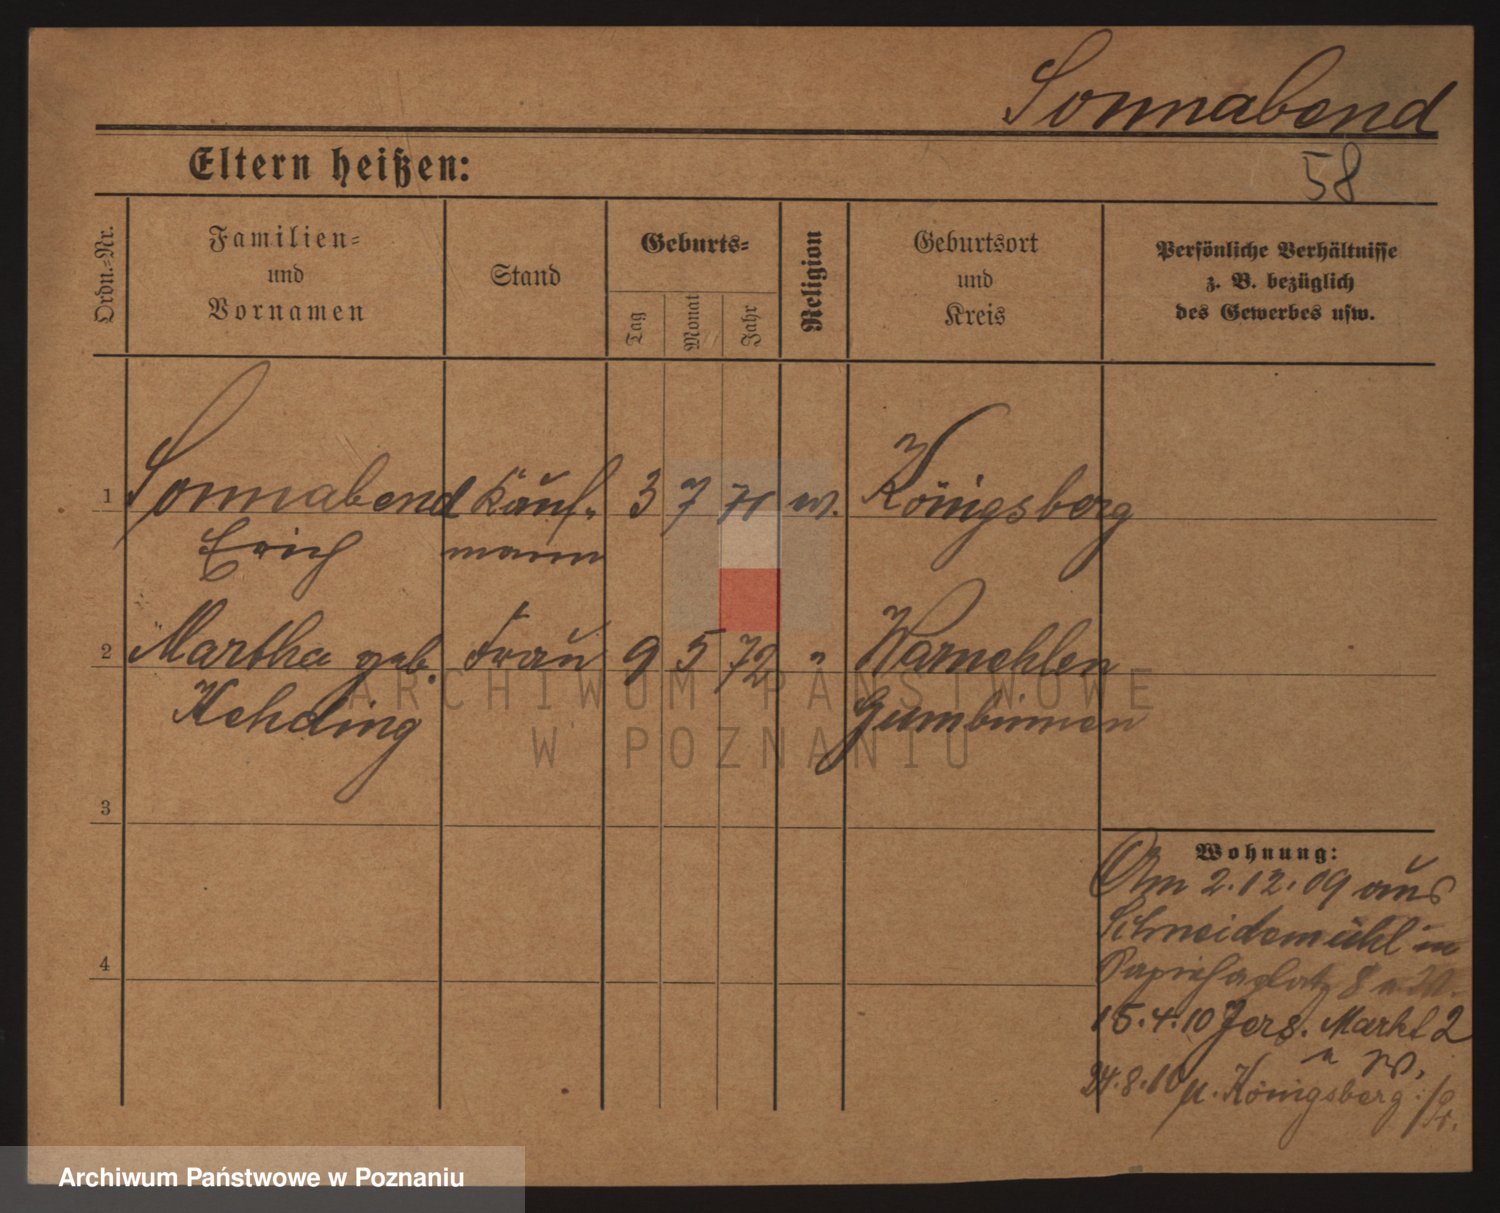 Sonnabend
58
Eltern heißen:
Ordn.-Nr.
Familien-
und
Vornamen
Stand
Geburts-
Tag
Monat
Jahr
Religion
Geburtsort
und
Kreis
Persönliche Verhältnisse
z. B. bezüglich
des Gewerbes usw.
1 Sonnabend Kauf- 3 7 71 Königsberg
Erich mann
2 Martha geb. Frau 9 5 72 " Warnehlen
Kehding Gumbinnen
3
4
Wohnung:
Am 2.12.09 aus
Schneidemühl in
8
15.4.10 Jers. Markt 2
24.8.10 n. Königsberg i/Pr.
ARCHIWUM PAŃSTWOWE
W POZNANIU
Archiwum Państwowe w Poznaniu